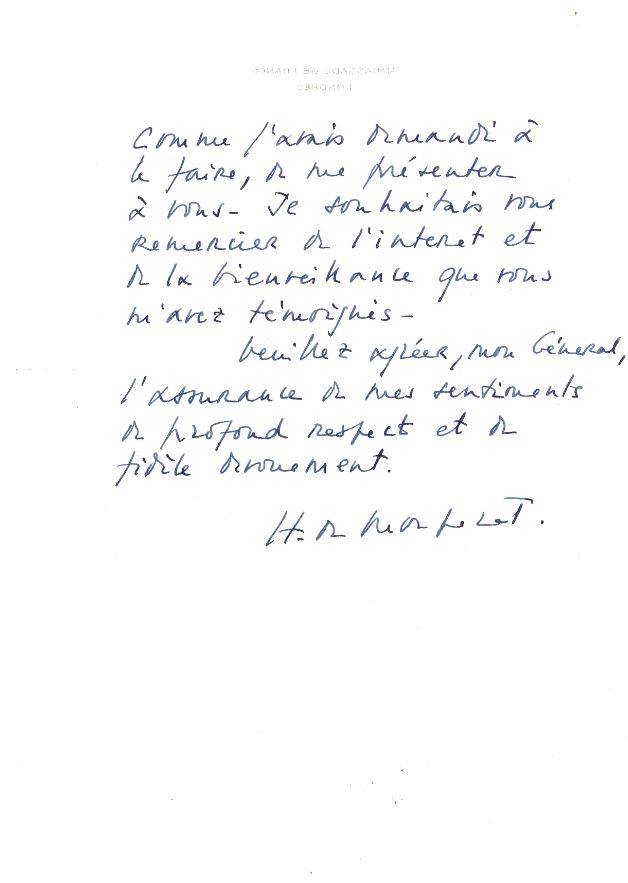 AMBASSADE DE FRANCE
LONDRES
Comme j'avais demandé à
le faire, de me présenter
à vous - Je souhaitais vous
remercier de l'interet et
de la bienveillance que vous
m'avez témoignés -
Veuillez agréer, mon Général,
l'assurance de mes sentiments
de profond respect et de
fidèle dévouement.
H. de Monpezat.